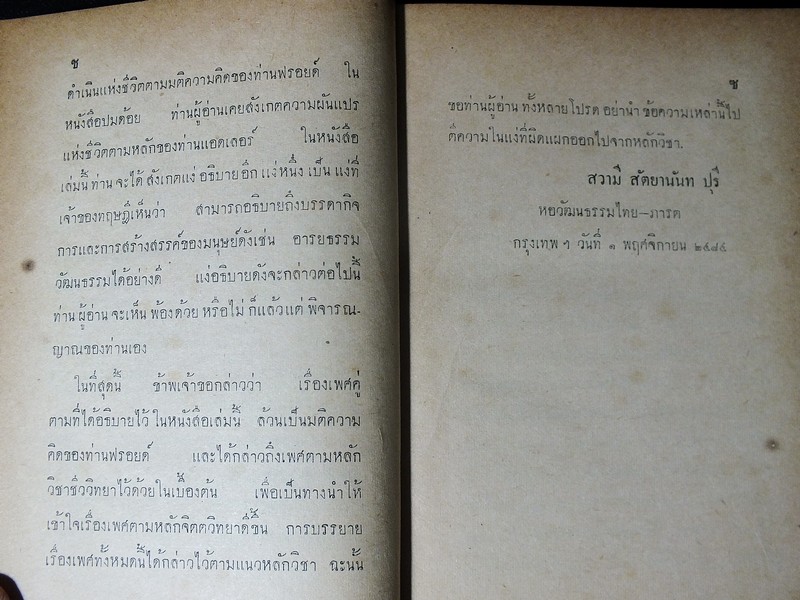 ช
ดำเนินแห่งชีวิตตามมติความคิดของท่านฟรอยด์ ใน
หนังสือปมด้อย ท่านผู้อ่านเคยสังเกตความผันแปร
แห่งชีวิตตามหลักของท่านแอดเลอร์ ในหนังสือ
เล่มนี้ ท่าน จะได้ สังเกตแง่ อธิบาย อีก แง่ หนึ่ง เป็น แง่ที่
เจ้าของทฤษฎีเห็นว่า สามารถอธิบายถึงบรรดากิจ
การและการสร้างสรรค์ของมนุษย์ดังเช่น อารยธรรม
วัฒนธรรมได้อย่างดี แง่อธิบายดังจะกล่าวต่อไปนี้
ท่าน ผู้อ่าน จะเห็น พ้องด้วย หรือไม่ ก็แล้วแต่ พิจารณ-
ญาณของท่านเอง
ในที่สุดนี้ ข้าพเจ้าขอกล่าวว่า เรื่องเพศคู่
ตามที่ได้อธิบายไว้ ในหนังสือเล่มนี้ ล้วนเป็นมติความ
คิดของท่านฟรอยด์ และได้กล่าวถึงเพศตามหลัก
วิชาชีววิทยาไว้ด้วยในเบื้องต้น เพื่อเป็นทางนำให้
เข้าใจเรื่องเพศตามหลักจิตตวิทยาดีขึ้น การบรรยาย
เรื่องเพศทั้งหมดนี้ได้กล่าวไว้ตามแนวหลักวิชา ฉะนั้น
ซ
ขอท่านผู้อ่าน ทั้งหลายโปรด อย่านำ ข้อความเหล่านี้ไป
ตีความในแง่ที่ผิดแผกออกไปจากหลักวิชา.
สวามี สัตยานันท ปุรี
หอวัฒนธรรมไทย–ภารต
กรุงเทพ ฯ วันที่ ๑ พฤศจิกายน ๒๔๘๕